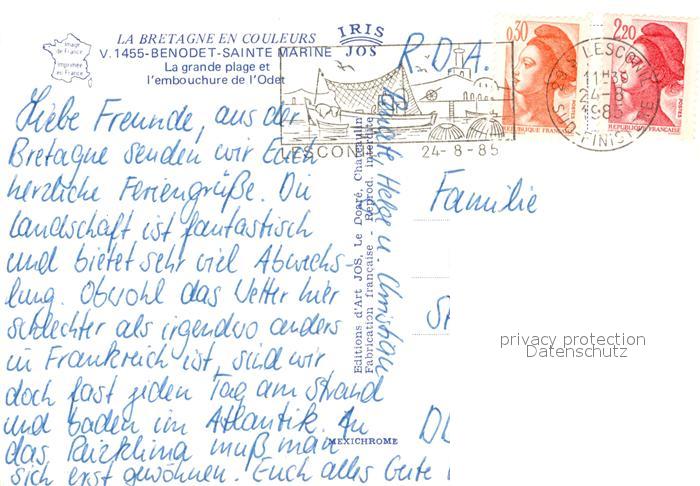 LA BRETAGNE EN COULEURS
V. 1455-BENODET-SAINTE MARINE
La grande plage et
l'embouchure de l'Odet
Image
de France
Imprimée
en France
IRIS
JOS
R.D.A.
LESCONIL 24-8-85
0,30
REPUBLIQUE FRANÇAISE
POSTES
2,20
REPUBLIQUE FRANÇAISE
POSTES
LESCONIL
11H30
24-8
1985
FINISTERE
Liebe Freunde, aus der
Bretagne senden wir Euch
herzliche Feriengrüße. Die
Landschaft ist fantastisch
und bietet sehr viel Abwechs-
lung. Obwohl das Wetter hier
schlechter als irgendwo anders
in Frankreich ist, sind wir
doch fast jeden Tag am Strand
und baden im Atlantik. An
das Reizklima muß man
sich erst gewöhnen. Euch alles Gute
Helga u. Christian
Editions d'Art JOS, Le Doaré, Chateaulin
Fabrication française - Reprod. interdite
MEXICHROME
Familie
privacy protection
Datenschutz